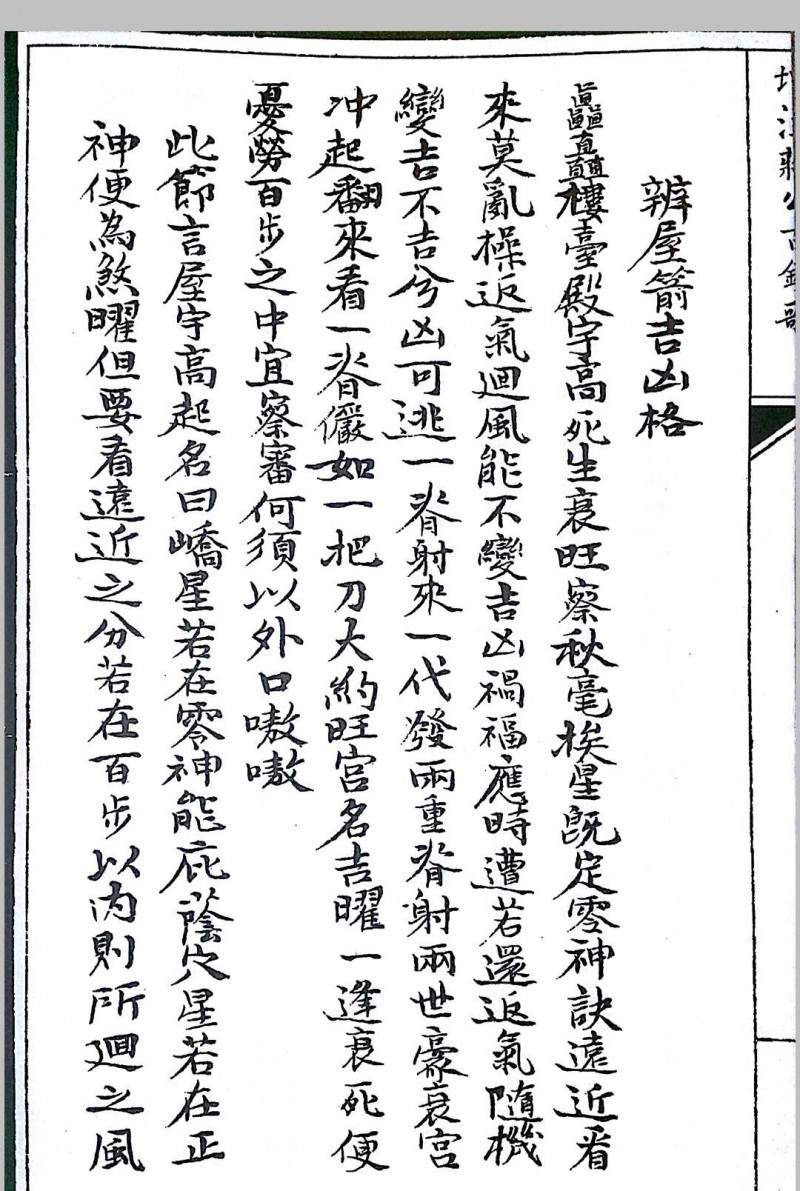 辨屋箭吉凶格
矗矗樓臺殿宇高死生衰旺察秋毫挨星既定零神訣遠近看
來莫亂操返氣迴風能不變吉凶禍福應時遭若還返氣隨機
變吉不吉兮凶可逃一脊射來一代發兩重脊射兩世豪衰宮
冲起翻來看一脊儼如一把刀大約旺宮名吉曜一逢衰死便
憂勞百步之中宜察審何須以外口嗷嗷
此節言屋宇高起名曰嶠星若在零神能庇蔭穴星若在正
神便為煞曜但要看遠近之分若在百步以內則所迴之風